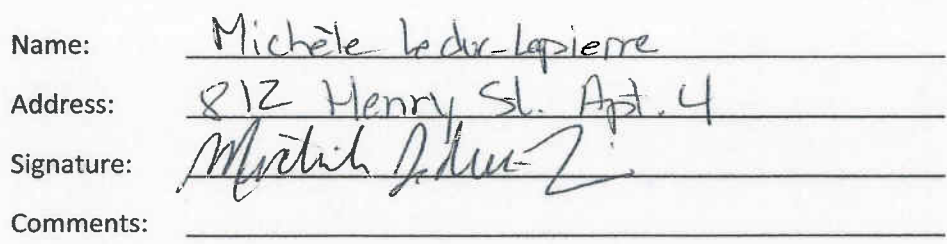 Name: Michèle Leduc-Lapierre
Address: 812 Henry St. Apt. 4
Signature:
Comments: